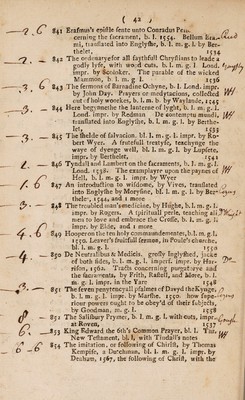 ( 42 )
841 Erasmus's epistle sente unto Conradus
cerning the sacrament, b. l. 1554. Bellum Eras-
mi, translated into Englyshe, b. l. m. g. l. by Ber-
thelet, 1534
842 The ordenarye for all faythfull Chrystians to leade a
godly lyfe, with wood cuts, b. l. m. g. l. Lond.
impr. by Scoloker. The parable of the wicked
Mammon, b. l. m. g. l. 1536
843 The sermons of Barnardine Ochyne, b. l. Lond. impr.
by John Day. Prayers or medytacions, collected
out of holy woorkes, b. l. m. b. by Waylande, 1545
844 Here begynnethe the lanterne of lyght, b. l. m. g. l.
Lond. impr. by Redman De contemptu mundi,
translated into Englyshe, b. l. m. g. l. by Berthe-
let, 1533
845 The shelde of salvacion, bl. l. m. g. l. impr. by Ro-
bert Wyer. A frutefull treatyse, teachynge the
waye of dyenge well, b. l. m. g. l. by Lupsete,
impr. by Berthelet, 1541
846 Tyndall and Lambert on the sacraments, b. l. m. g. l.
Lond. 1538. The examplayre upon the paynes of
Hell, b. l. m. g. l. impr. by Wyer
847 An introduction to wisdome, by Vives, translated
into Englyshe by Morysine, bl. l. m. g. l. by Ber-
thelet, 1544, and 1 more
848 The troubled man's medicine, by Hughe, b. l. m. g. l.
impr. by Rogers. A spirituall perle, teaching all
men to love and embrace the Crosse, b. l. m. g. l.
impr. by Elde, and 1 more
849 Hooper on the ten holy commandementes, b. l. m. g. l.
1550. Leaver's fruitfull sermon, in Poule's churche,
bl. l. m. g. l. 1550
850 De Neutralibus & Mediis, grosly Inglyshed, jacke
of both sides, b. l. m. g. l. imperf. impr. by Har-
rison, 1562. Tracts concerning purgatorye and
the sacraments, by Frith, Rastell, and More, b. l.
m. g. l. impr. in the Yare 1548
851 The seven penytencyall psalmes of Davyd the Kynge,
b. l. m. g. l. impr. by Marshe, 1550. how supe-
riour powers ought to be obey'd of their subjects,
by Goodman, m. g. l. 1558
852 The Salisbury Prymer, b. l. m. g. l. with cuts, impr.
at Roven, 1537
853 King Edward the 6th's Common Prayer, bl. l.
New Testament, bl. l. with Tindall's notes
854 The imitation, or following of Christ, by Thomas
Kempise, a Dutchman, bl. l. m. g. l. impr. by
Denham, 1567, the following of Christ, with the